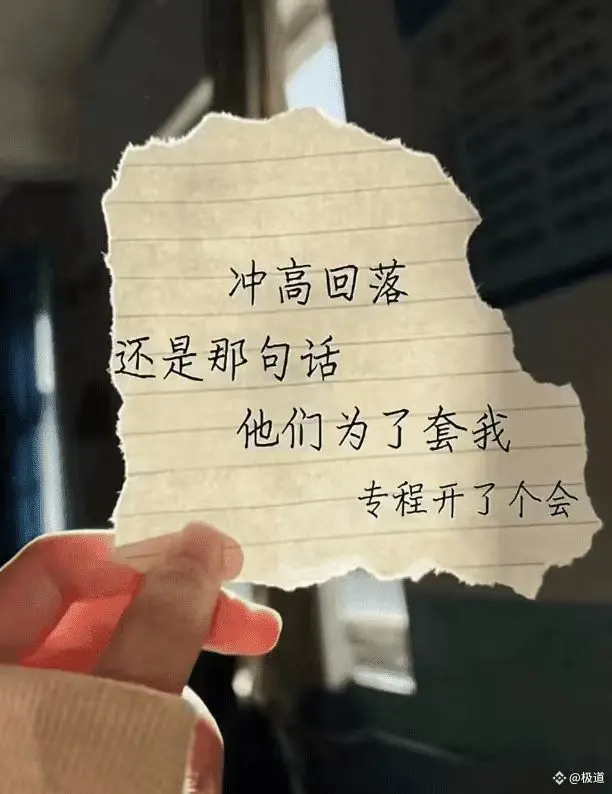 冲高回落
还是那句话
他们为了套我
专程开了个会
@极道